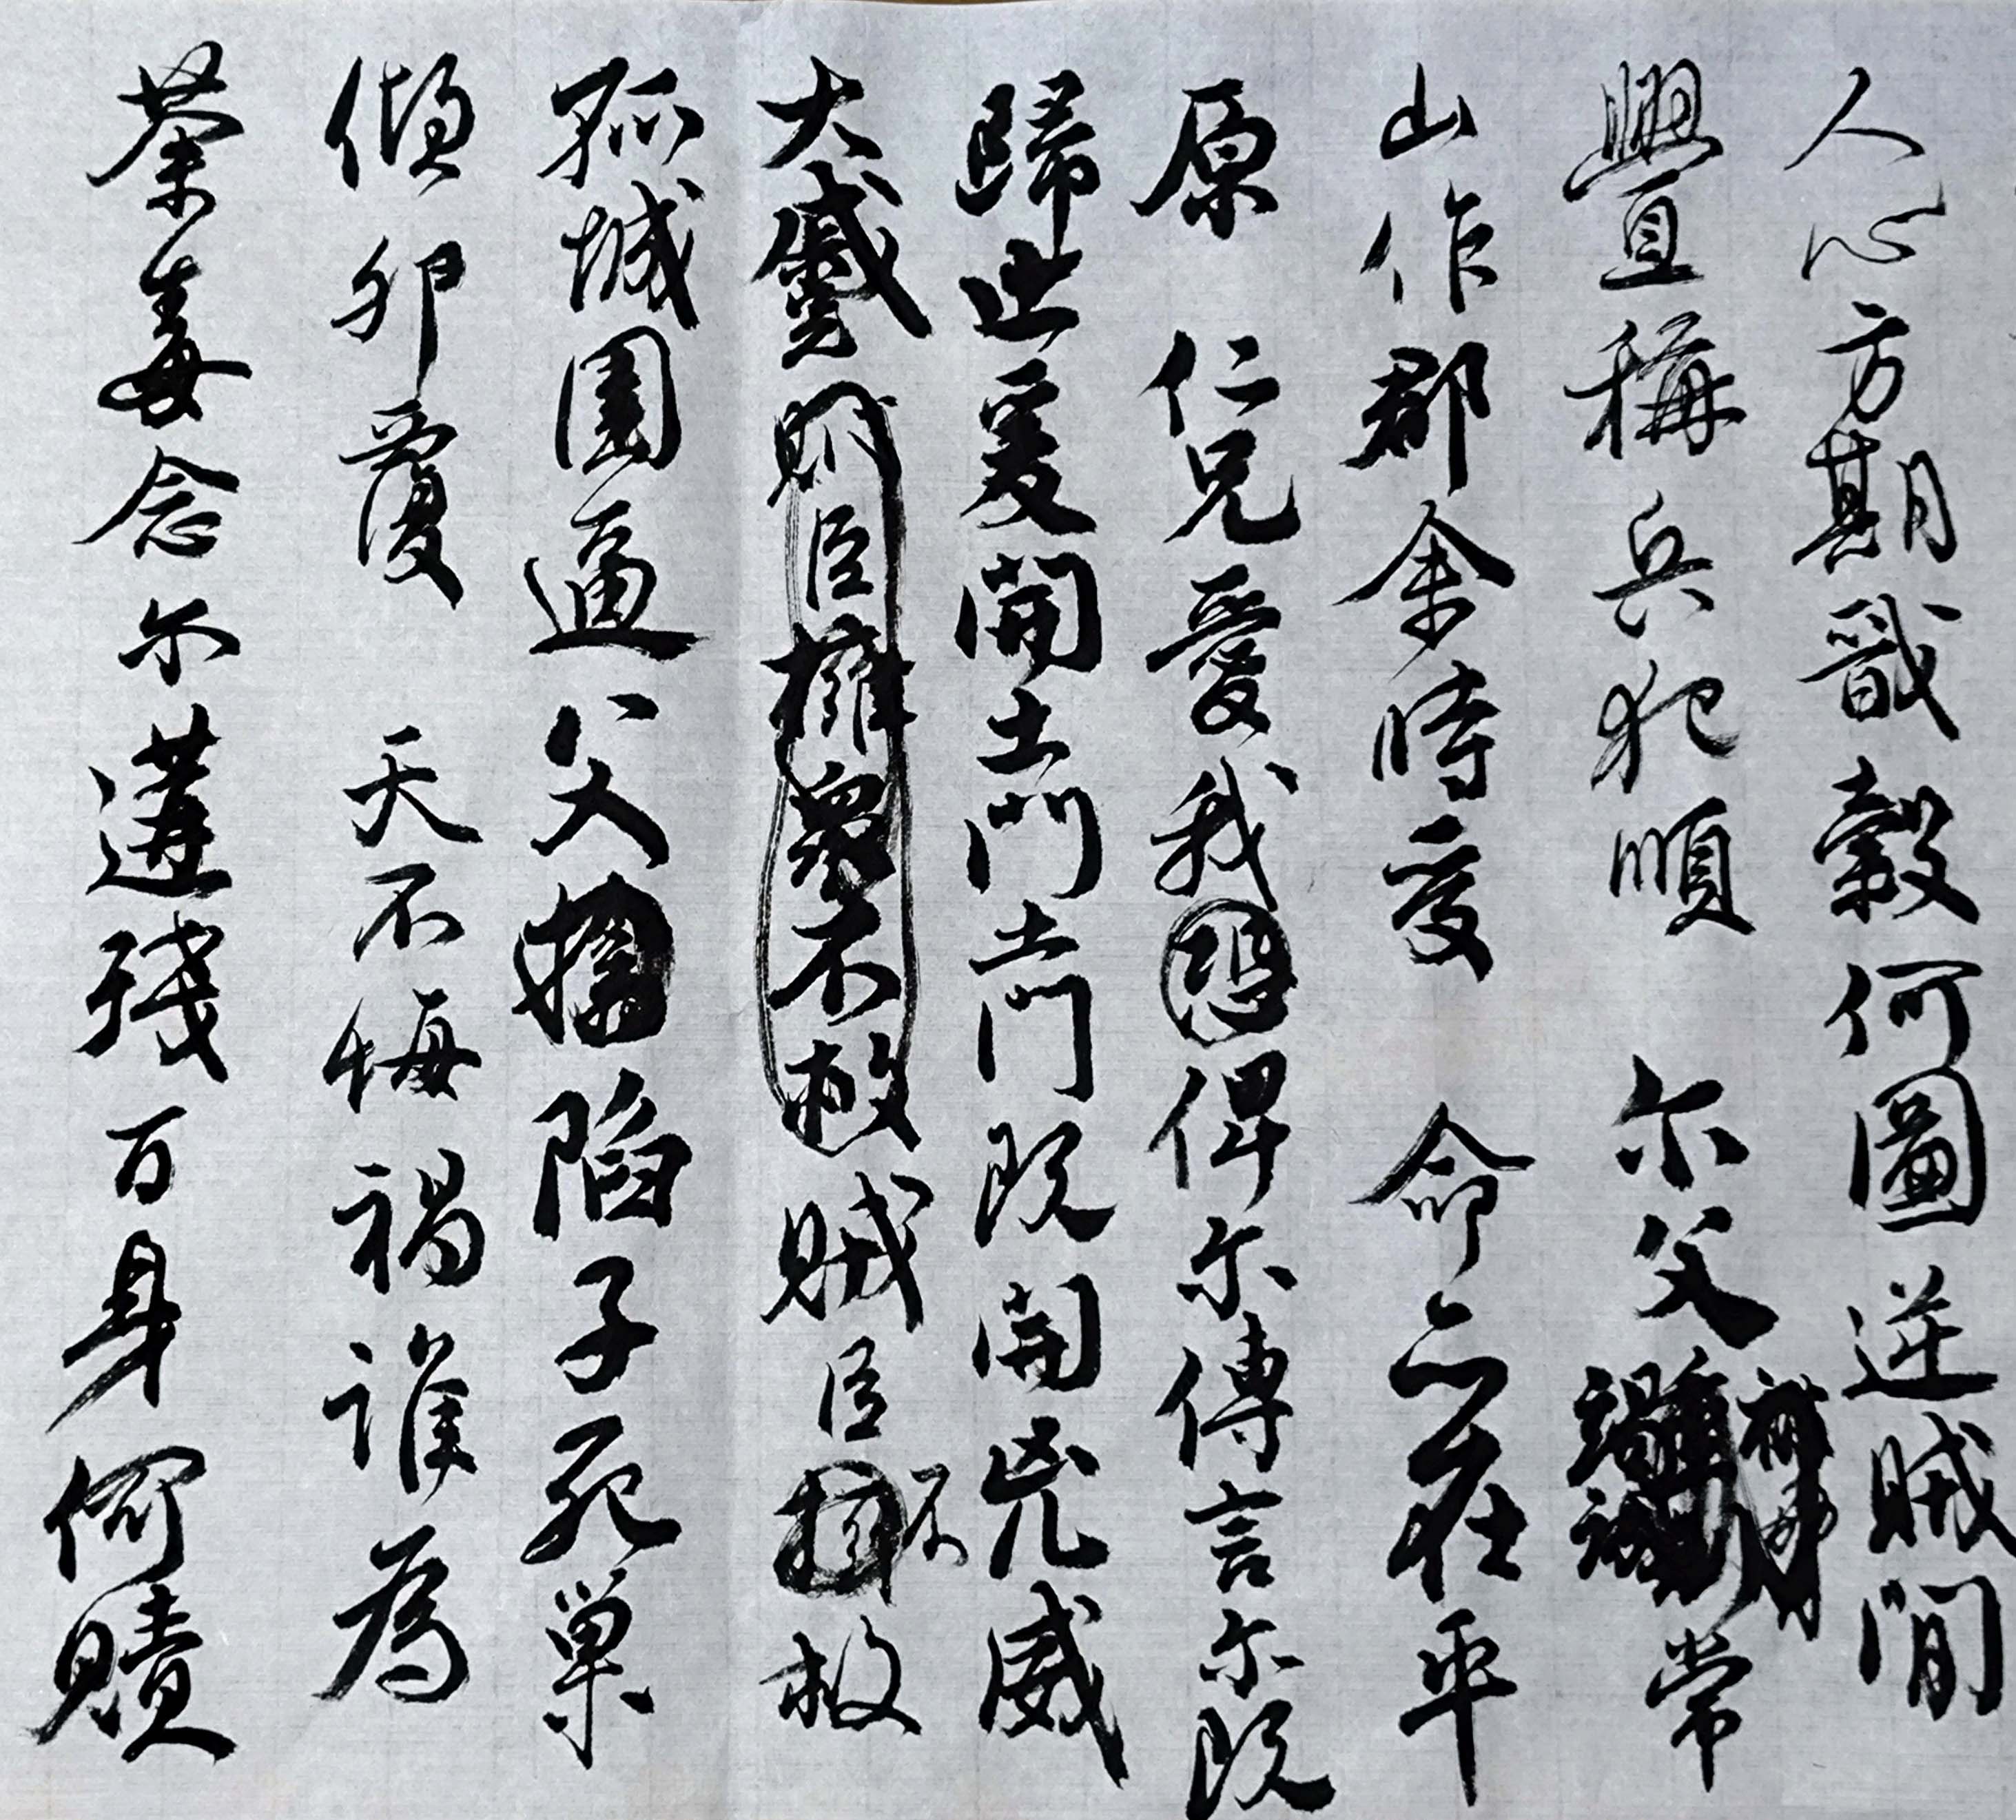 人心方期戩穀何圖逆賊閒
舋稱兵犯順 尔父常
山作郡余時受 命亦在平
原 仁兄愛我恐俾尔傳言尔既
歸止爰開土門土門既開兇威
大蹙賊臣擁衆不救賊臣不救
孤城圍逼父陷子死巢
傾卵覆 天不悔禍誰為
荼毒念尔遘殘百身何贖